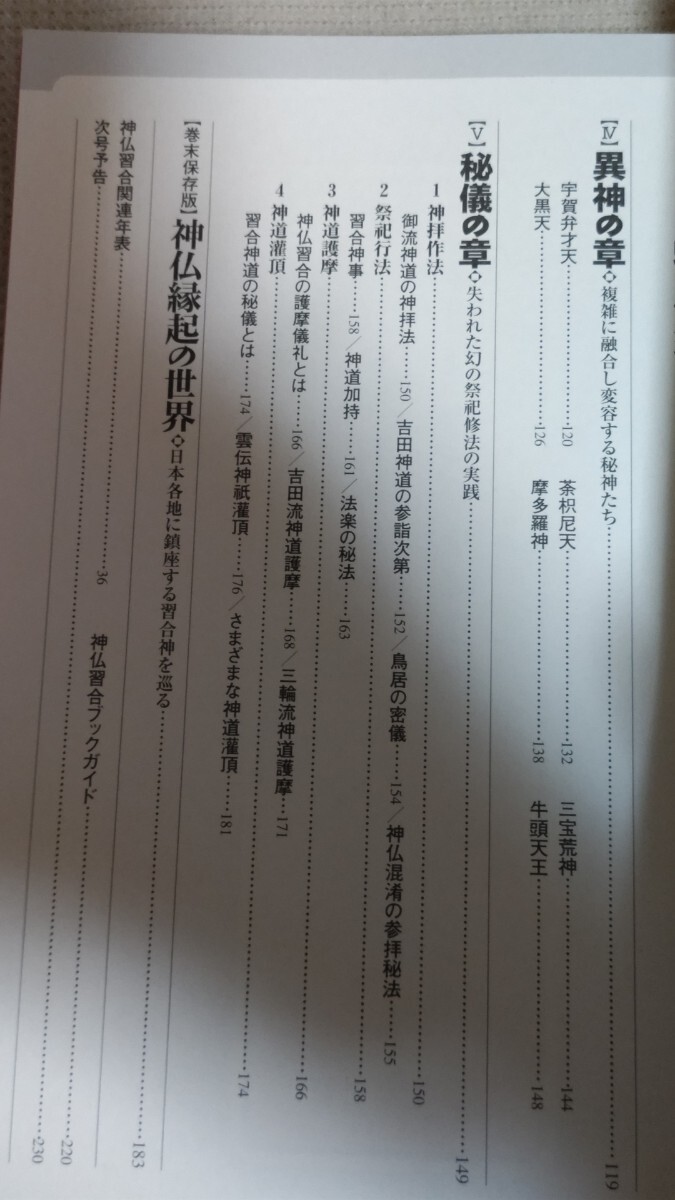 【Ⅳ】異神の章◆複雑に融合し変容する秘神たち……119
宇賀弁才天……120
荼枳尼天……132
三宝荒神……144
大黒天……126
摩多羅神……138
牛頭天王……148
【Ⅴ】秘儀の章◆失われた幻の祭祀修法の実践……149
1 神拝作法……150
御流神道の神拝法……150/吉田神道の参詣次第……152/鳥居の密儀……154/神仏混淆の参拝秘法……155
2 祭祀行法……158
習合神事……158/神道加持……161/法楽の秘法……163
3 神道護摩……166
神仏習合の護摩儀礼とは……166/吉田流神道護摩……168/三輪流神道護摩…171
4 神道灌頂……174
習合神道の秘儀とは……174/雲伝神祇灌頂……176/さまざまな神道灌頂……181
【巻末保存版】神仏縁起の世界◆日本各地に鎮座する習合神を巡る……183
神仏習合関連年表……36
神仏習合ブックガイド……220
次号予告……230